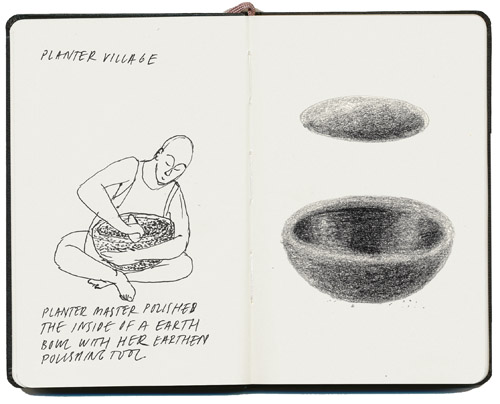 PLANTER VILLAGE
PLANTER MASTER POLISHED
THE INSIDE OF A EARTH
BOWL WITH HER EARTHEN
POLISHING TOOL